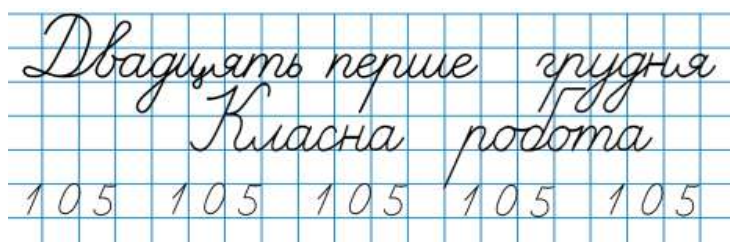 Двадцять перше грудня
Класна робота
105 105 105 105 105